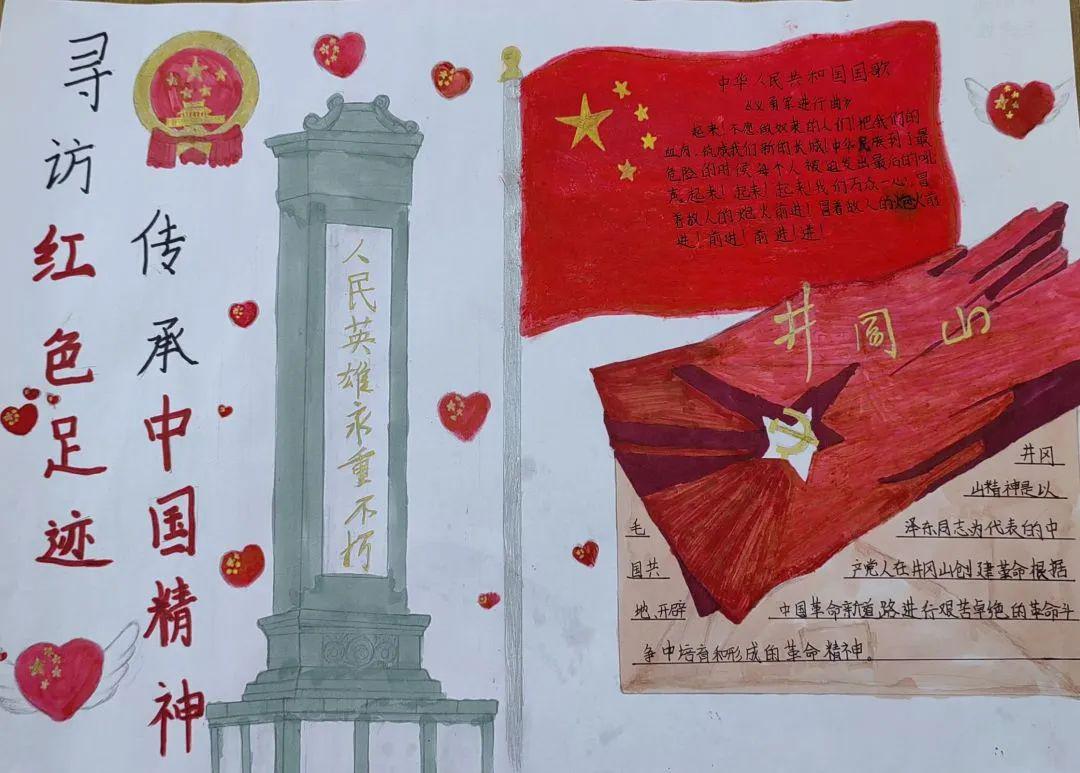 寻访红色足迹
传承中国精神
人民英雄永重不朽
中华人民共和国国歌
《义勇军进行曲》
起来!不愿做奴隶的人们!把我们的
血肉,筑成我们新的长城!中华民族到了最
危险的时候每个人被迫发出最后的吼
声。起来!起来!起来!我们万众一心,冒
着敌人的炮火前进!冒着敌人的炮火前
进!前进!前进!进!
井岡山
井冈
山精神是以
毛 泽东同志为代表的中
国共 产党人在井冈山创建革命根据
地,开辟 中国革命新道路进行艰苦卓绝的革命斗
争中培育和形成的革命精神。